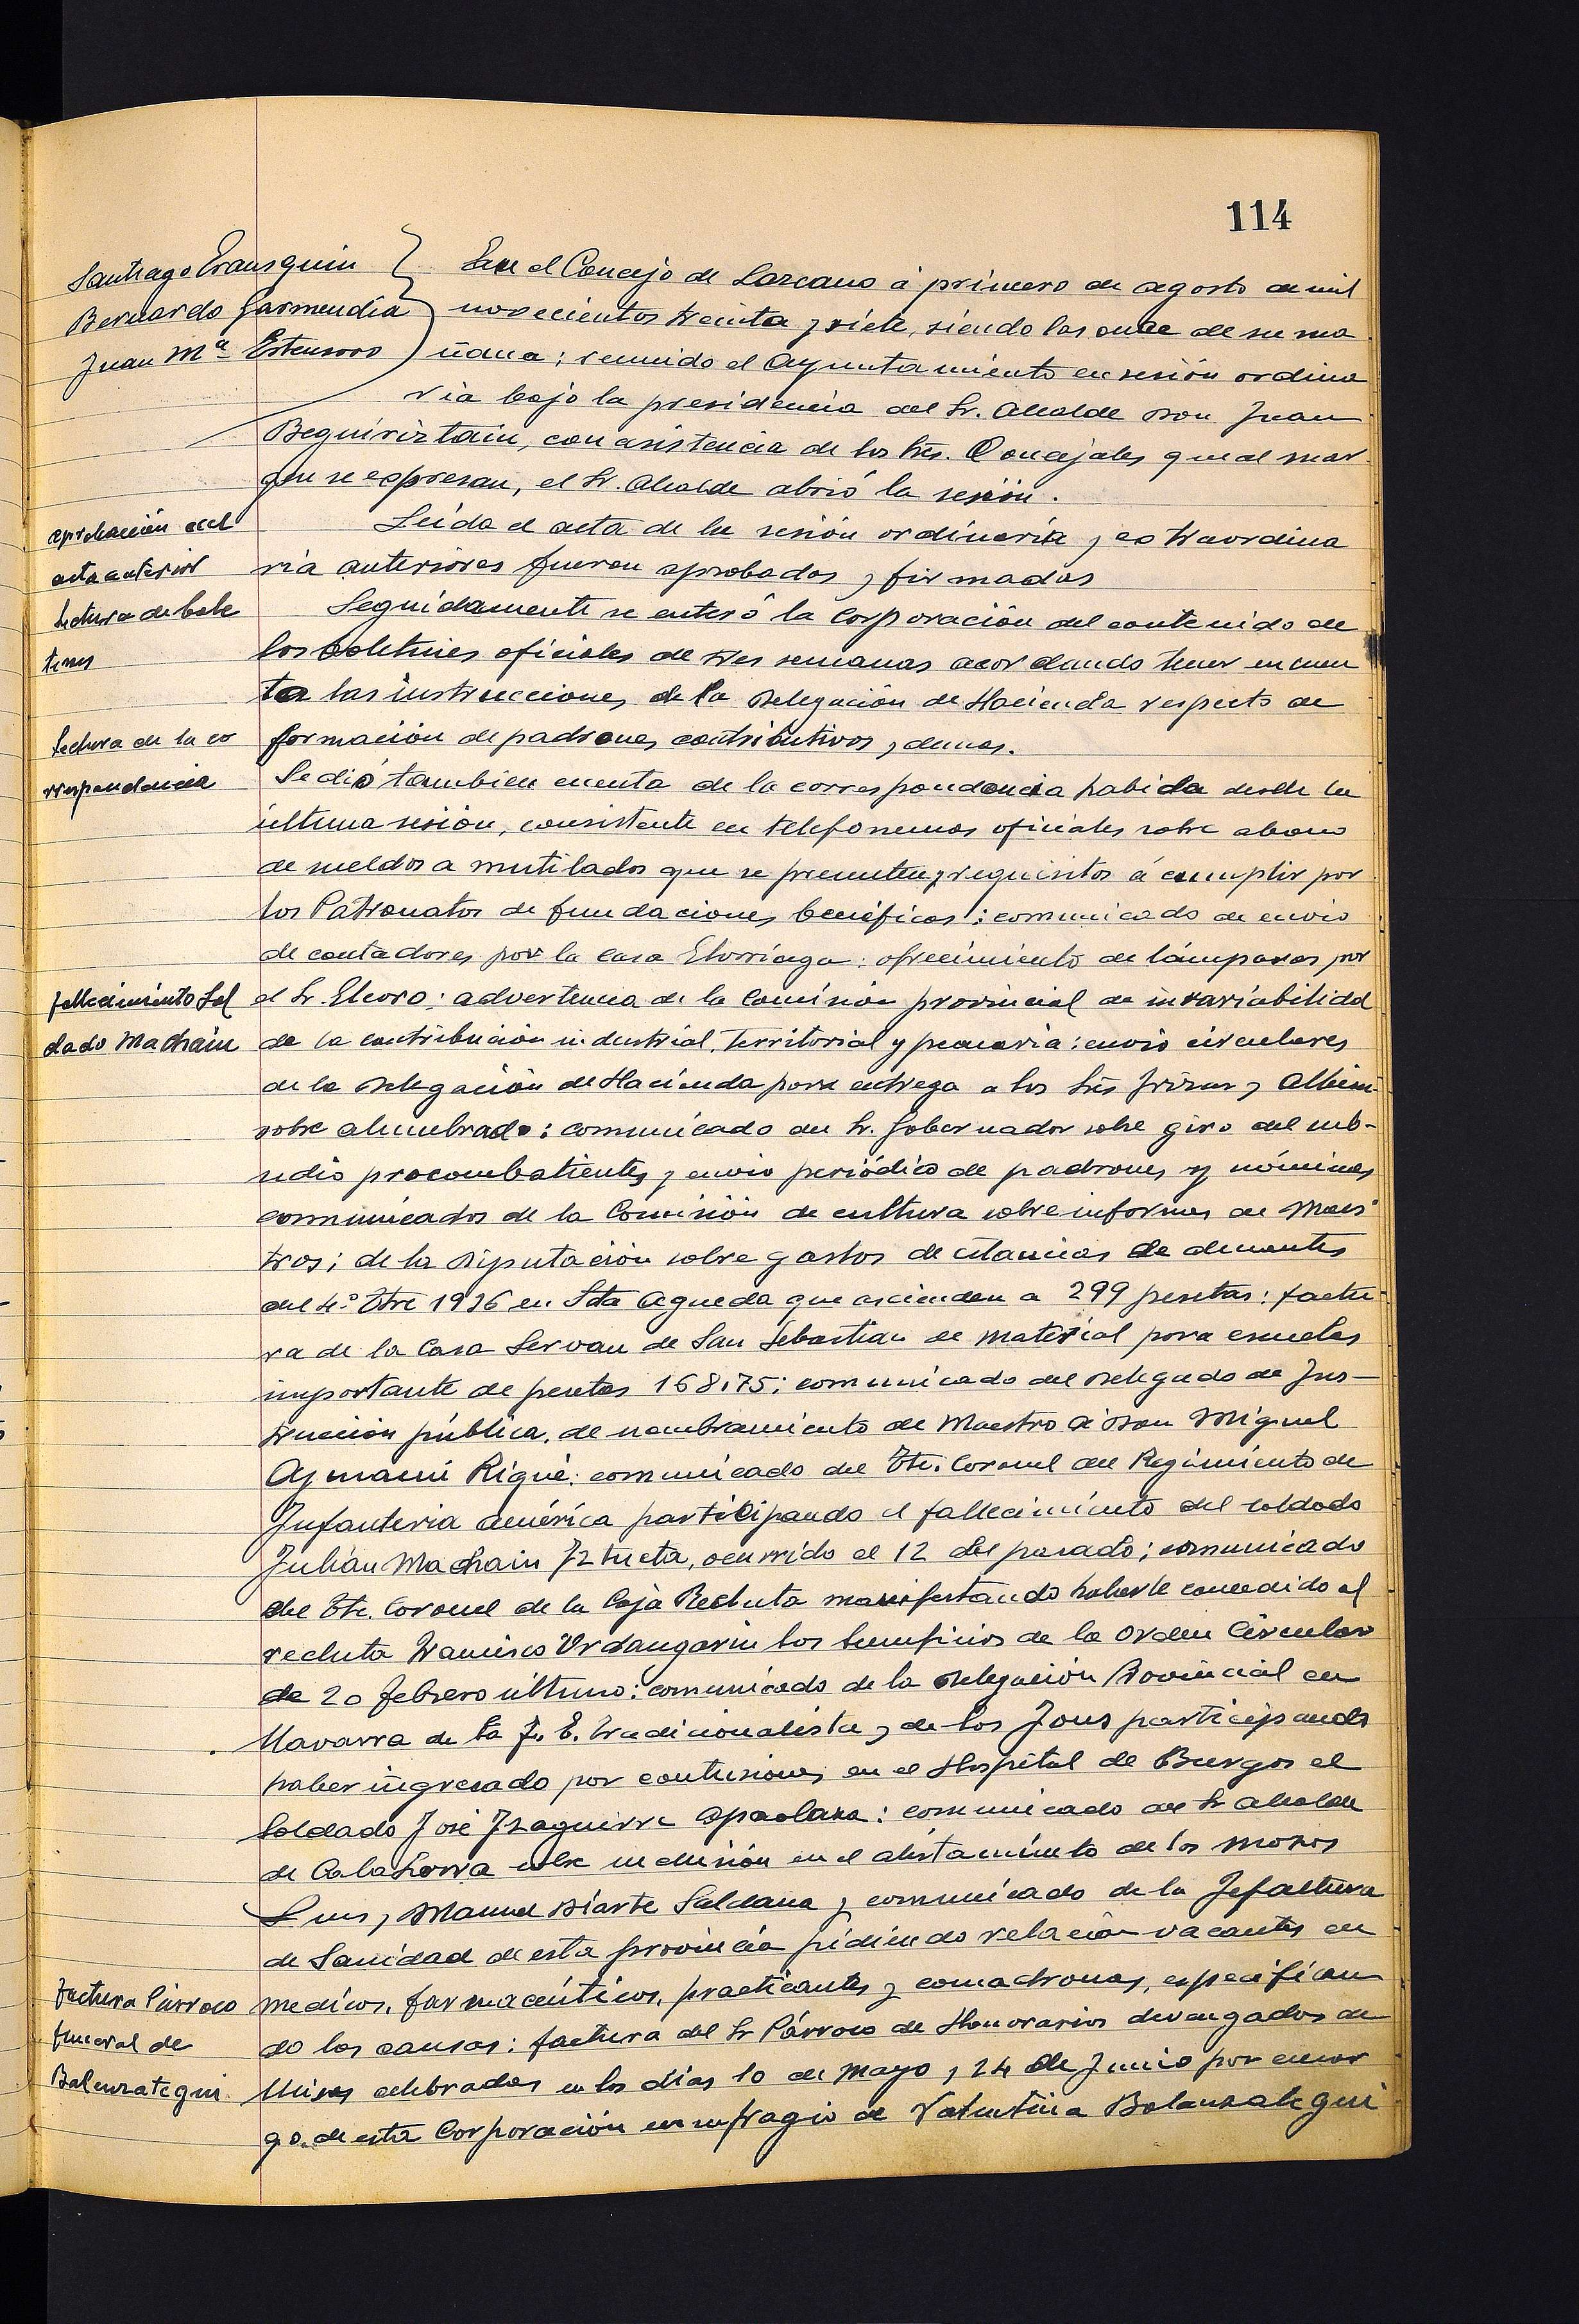 114
Santiago Erausquin
Bernardo Garmendia
Juan Mª Estensoro
En el Concejo de Lazcano á primero de agosto de mil
novecientos treinta y siete, siendo las once de su ma
ñana; reunido el Ayuntamiento en sesión ordina
ria bajo la presidencia del Sr. Alcalde Don Juan
Beguiriztain, con asistencia de los Srs. Concejales que al mar
gen se expresan, el Sr. Alcalde abrió la sesión.
aprobación del
acta anterior
Leida el acta de la sesión ordinaria y extraordina
ria anteriores fueron aprobadas y firmadas
Lectura de bole
tines
Seguidamente se enteró la Corporación del contenido de
los boletines oficiales de tres semanas acordando tener en cuen
ta las instrucciones de la Delegación de Hacienda respecto de
formación de padrones contributivos y demas.
Lectura de la co
rrespondencia
Se dió tambien cuenta de la correspondencia habida desde la
última sesión, consistente en telefonemas oficiales sobre abono
de sueldos a mutilados que se presenten y requisitos á cumplir por
los Patronatos de fundaciones benéficas: comunicado de envio
de contadores por la casa Elorriaga: ofrecimiento de lámparas por
fallecimiento Sol
dado Machain
el Sr Elcoro: advertencia de la Comisión provincial de invariabilidad
de la contribución industrial, territorial y pecuaria: envio circulares
de la Delegación de Hacienda para entrega a los Srs y
sobre alumbrado: comunicado del Sr. Gobernador sobre giro del sub-
sidio procombatientes y envio periódico de padrones y nóminas
comunicados de la Comisión de cultura sobre informes de Maes
tros; de la Diputación sobre gastos de estancias de dementes
del 4.º Ttre 1936 en Sta Agueda que ascienden a 299 pesetas: factu
ra de la Casa Servan de San Sebastian de material para escuelas
importante de pesetas 168,75; comunicado del Delegado de Ins-
trucción pública, de nombramiento de Maestro á Don Miguel
Aymamí Riqué: comunicado del Tte. Coronel del Regimiento de
Infanteria América participando el fallecimiento del soldado
Julián Machain Iztueta, ocurrido el 12 del pasado; comunicado
del Tte. Coronel de la Caja Recluta manifestando haberle concedido al
recluta Francisco Urdangarin los beneficios de la Orden Circular
de 20 febrero último: comunicado de la Delegación Provincial en
Navarra de la F. E. Tradicionalista y de los Jons participando
haber ingresado por contusiones en el Hospital de Burgos el
Soldado José Izaguirre Apaolaza: comunicado del Sr alcalde
de Calahorra sobre inclusión en el alistamiento de los mozos
Luis y Manuel Diarte Saldana y comunicado de la Jefatura
de Sanidad de esta provincia pidiendo relación vacantes en
factura Párroco
funeral de
Balenzategui
medicos, farmacéuticos, practicantes y comadronas, especifican
do las causas: factura del Sr Párroco de Honorarios devengados de
Misas celebradas en los días 10 de Mayo y 24 de Junio por encar
go de esta Corporación en sufragio de Valentina Balenzategui